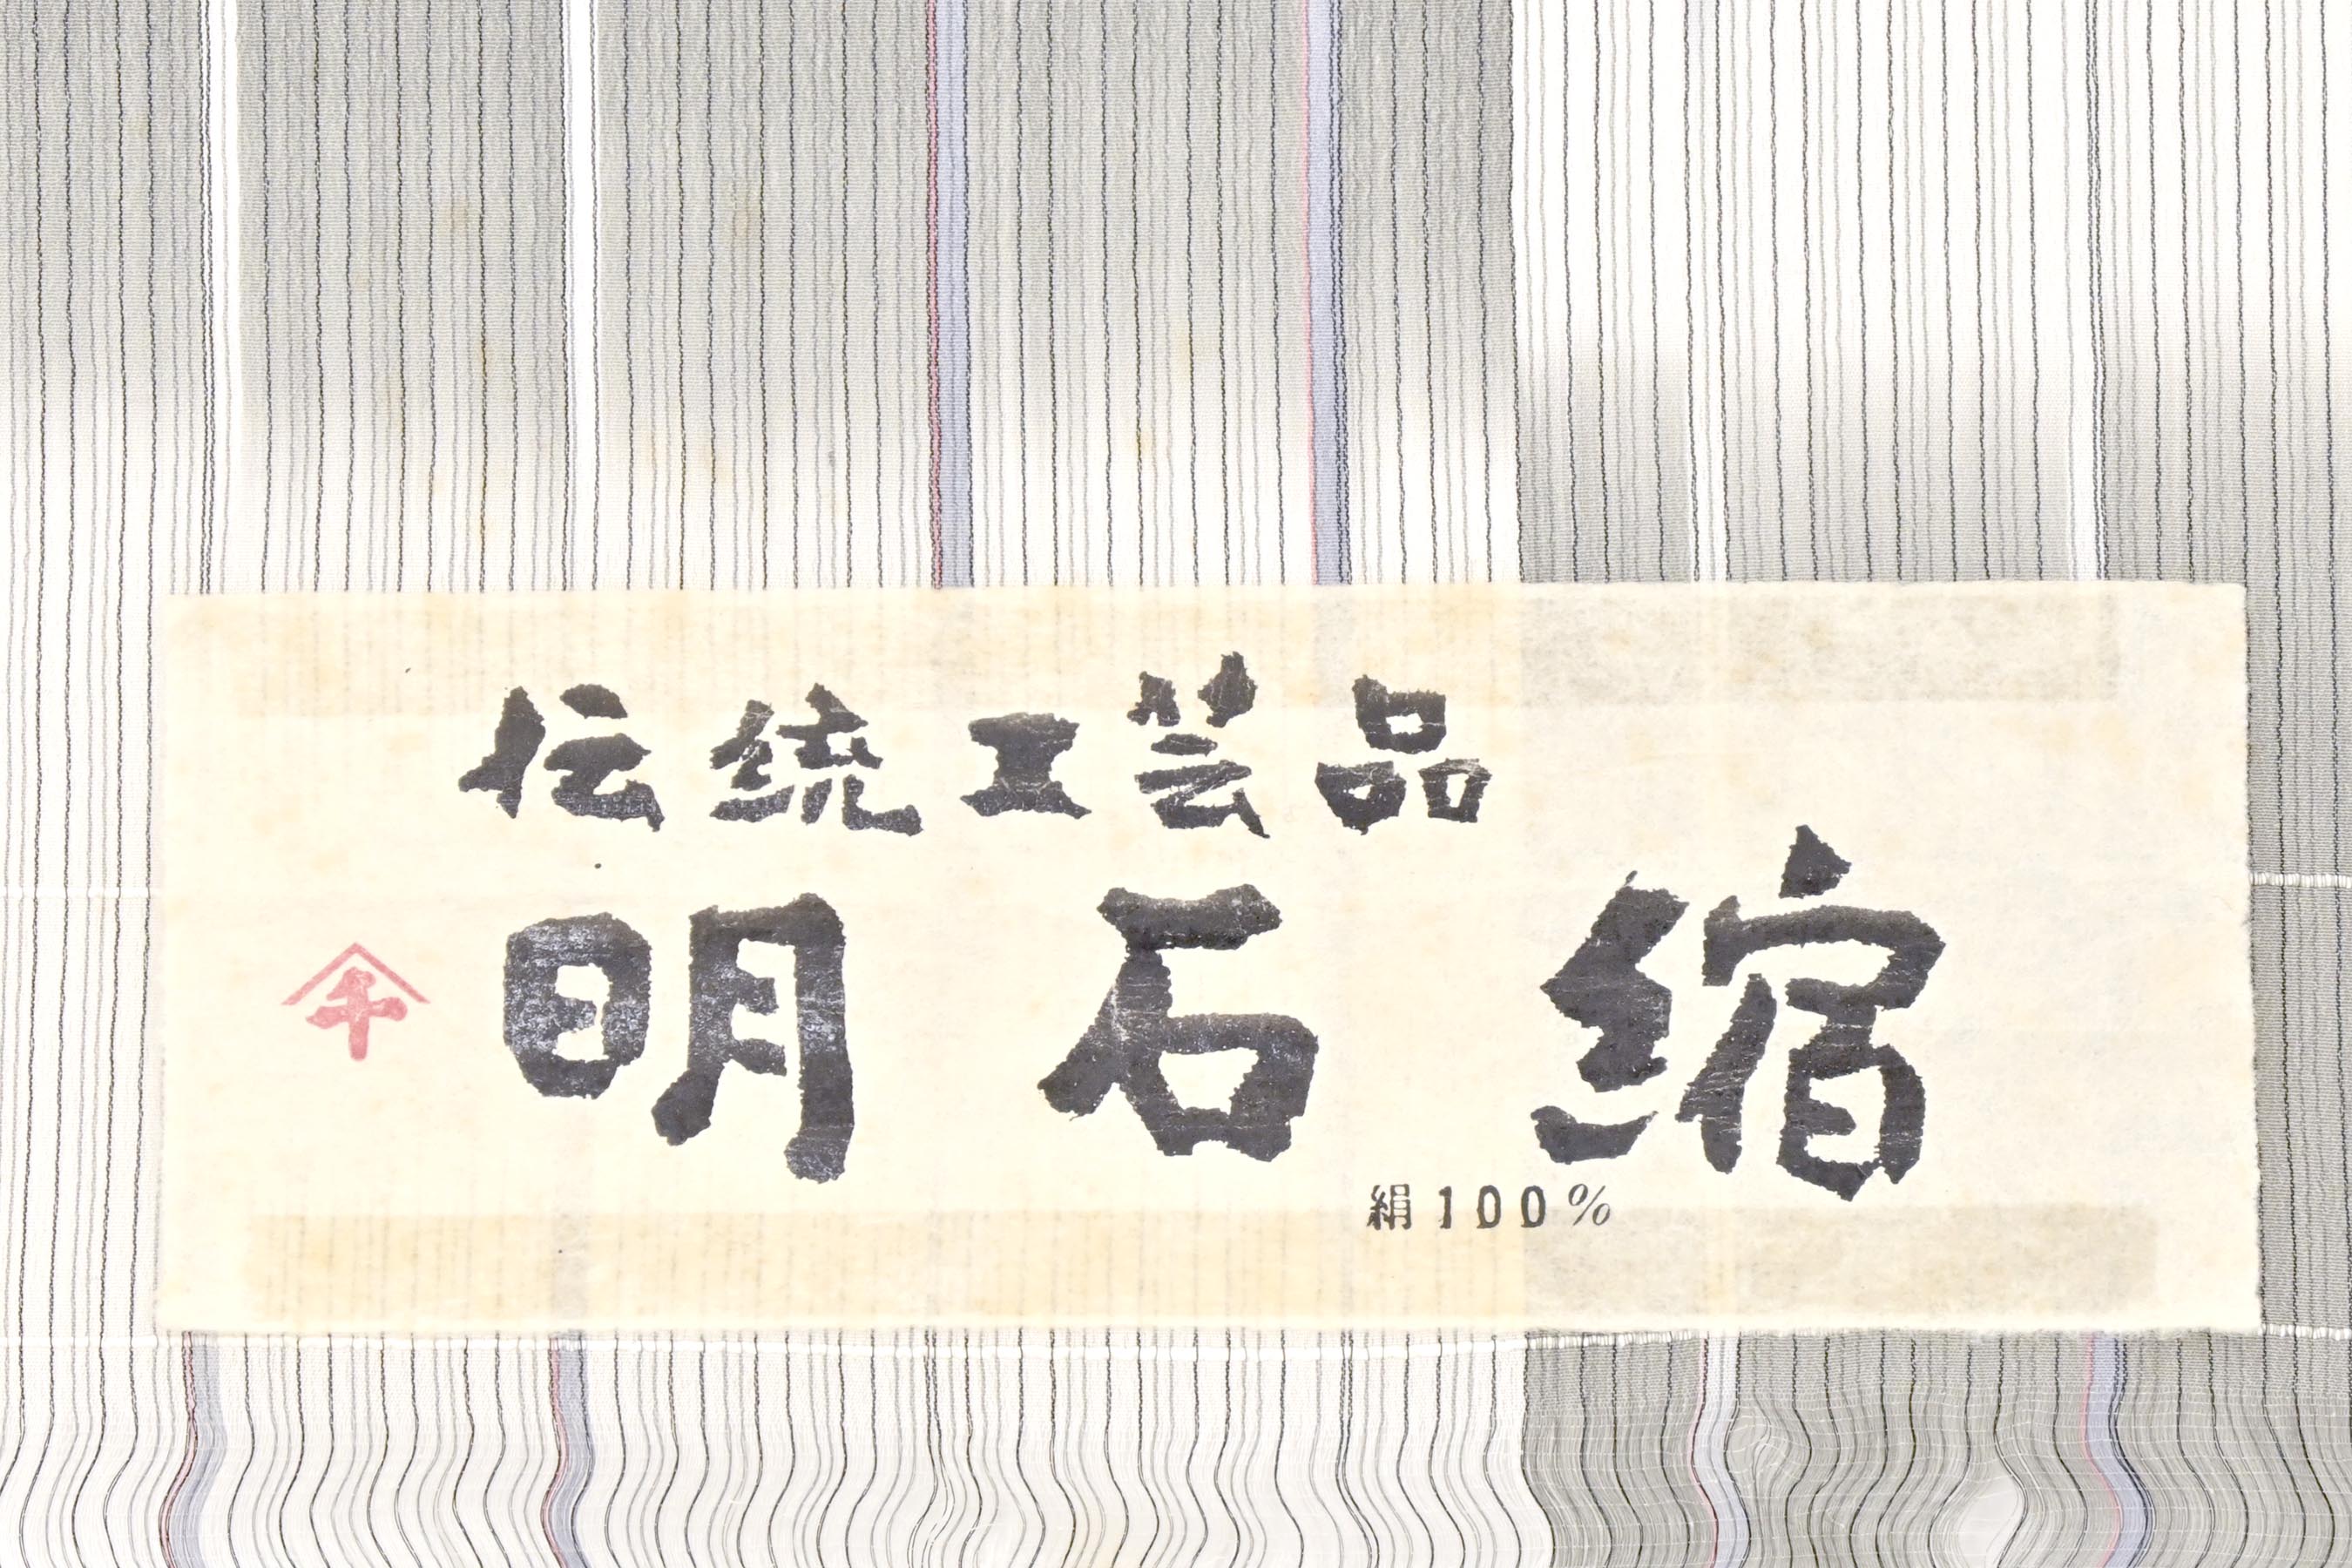 伝統工芸品
千 明石縮
絹100%